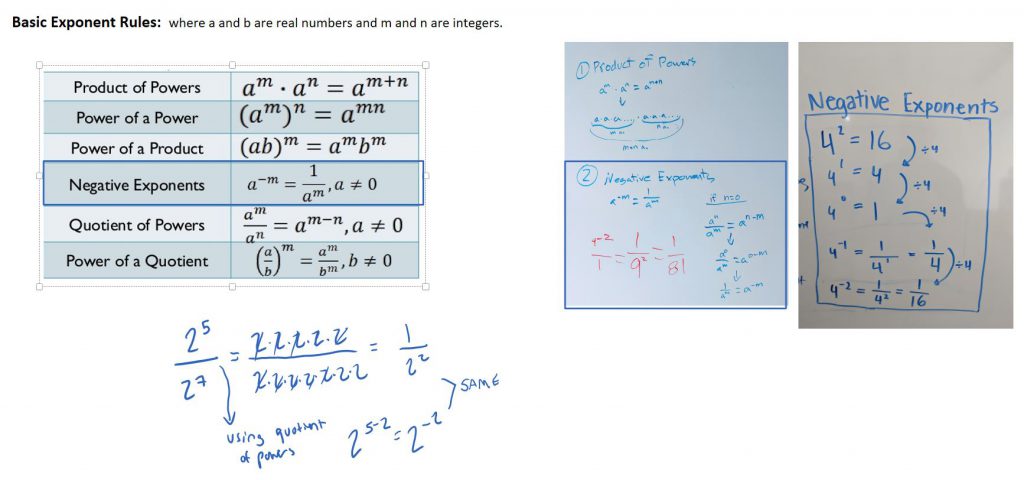 Basic Exponent Rules: where a and b are real numbers and m and n are integers.
Product of Powers a^m · a^n = a^{m+n}
Power of a Power (a^m)^n = a^{mn}
Power of a Product (ab)^m = a^m b^m
Negative Exponents a^{-m} = 1/a^m, a ≠ 0
Quotient of Powers a^m/a^n = a^{m-n}, a ≠ 0
Power of a Quotient (a/b)^m = a^m/b^m, b ≠ 0
2^5/2^7 = 2·2·2·2·2/2·2·2·2·2·2·2 = 1/2^2
SAME
using quotient
of powers
2^{5-2} = 2^{-2}
① Product of Powers
a^m · a^n = a^{m+n}
a·a·a.... · a·a·a....
② Negative Exponents
a^{-m} = 1/a^m
if n=0
a^n/a^m = a^{n-m}
a^0/a^m = a^{0-m}
1/a^m = a^{-m}
9^{-2}/1 = 1/9^2 = 1/81
Negative Exponents
4^2 = 16
÷4
4^1 = 4
÷4
4^0 = 1
÷4
4^{-1} = 1/4^1 = 1/4
÷4
4^{-2} = 1/4^2 = 1/16